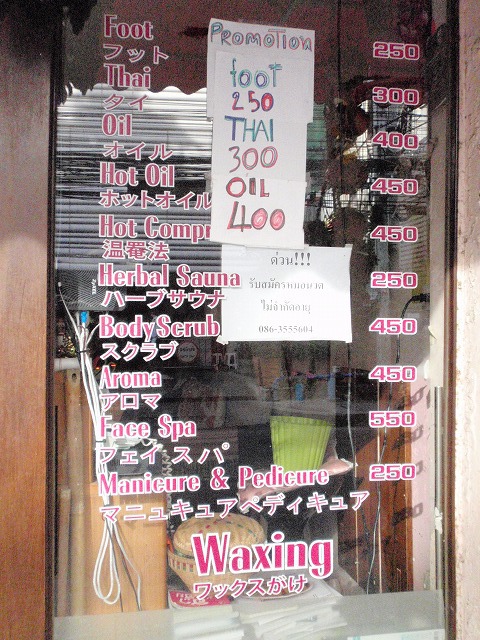 Foot 250
フット
Thai 300
タイ
Oil 400
オイル
Hot Oil 450
ホットオイル
Hot Compr 450
温罨法
Herbal Sauna 250
ハーブサウナ
Body Scrub 450
スクラブ
Aroma 450
アロマ
Face Spa 550
フェイスパ
Manicure & Pedicure 250
マニュキュアペディキュア
Waxing
ワックスがけ
PROMOTION
foot
250
THAI
300
OIL
400
ด่วน!!!
รับสมัครหมอนวด
ไม่จำกัดอายุ
086-3555604